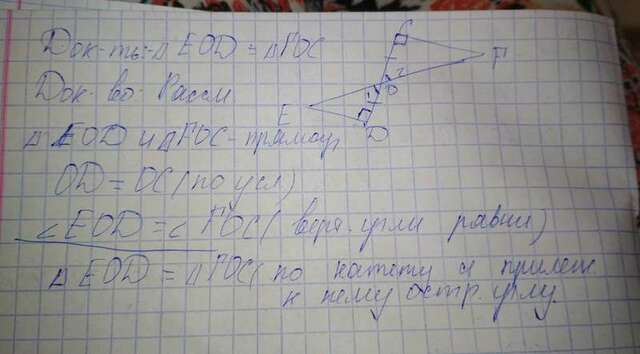 Док-ть: △ EOD = △ FOC
Док-во: Рассм
△ EOD и △ FOC - прямоуг
OD = OC (по усл)
∠EOD = ∠ FOC (верт. углы равны)
△ EOD = △ FOC (по катету и прилеж
к нему остр. углу
C
F
2
O
1
E
D